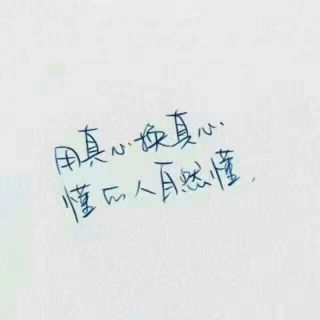 用真心换真心.
懂的人自然懂.